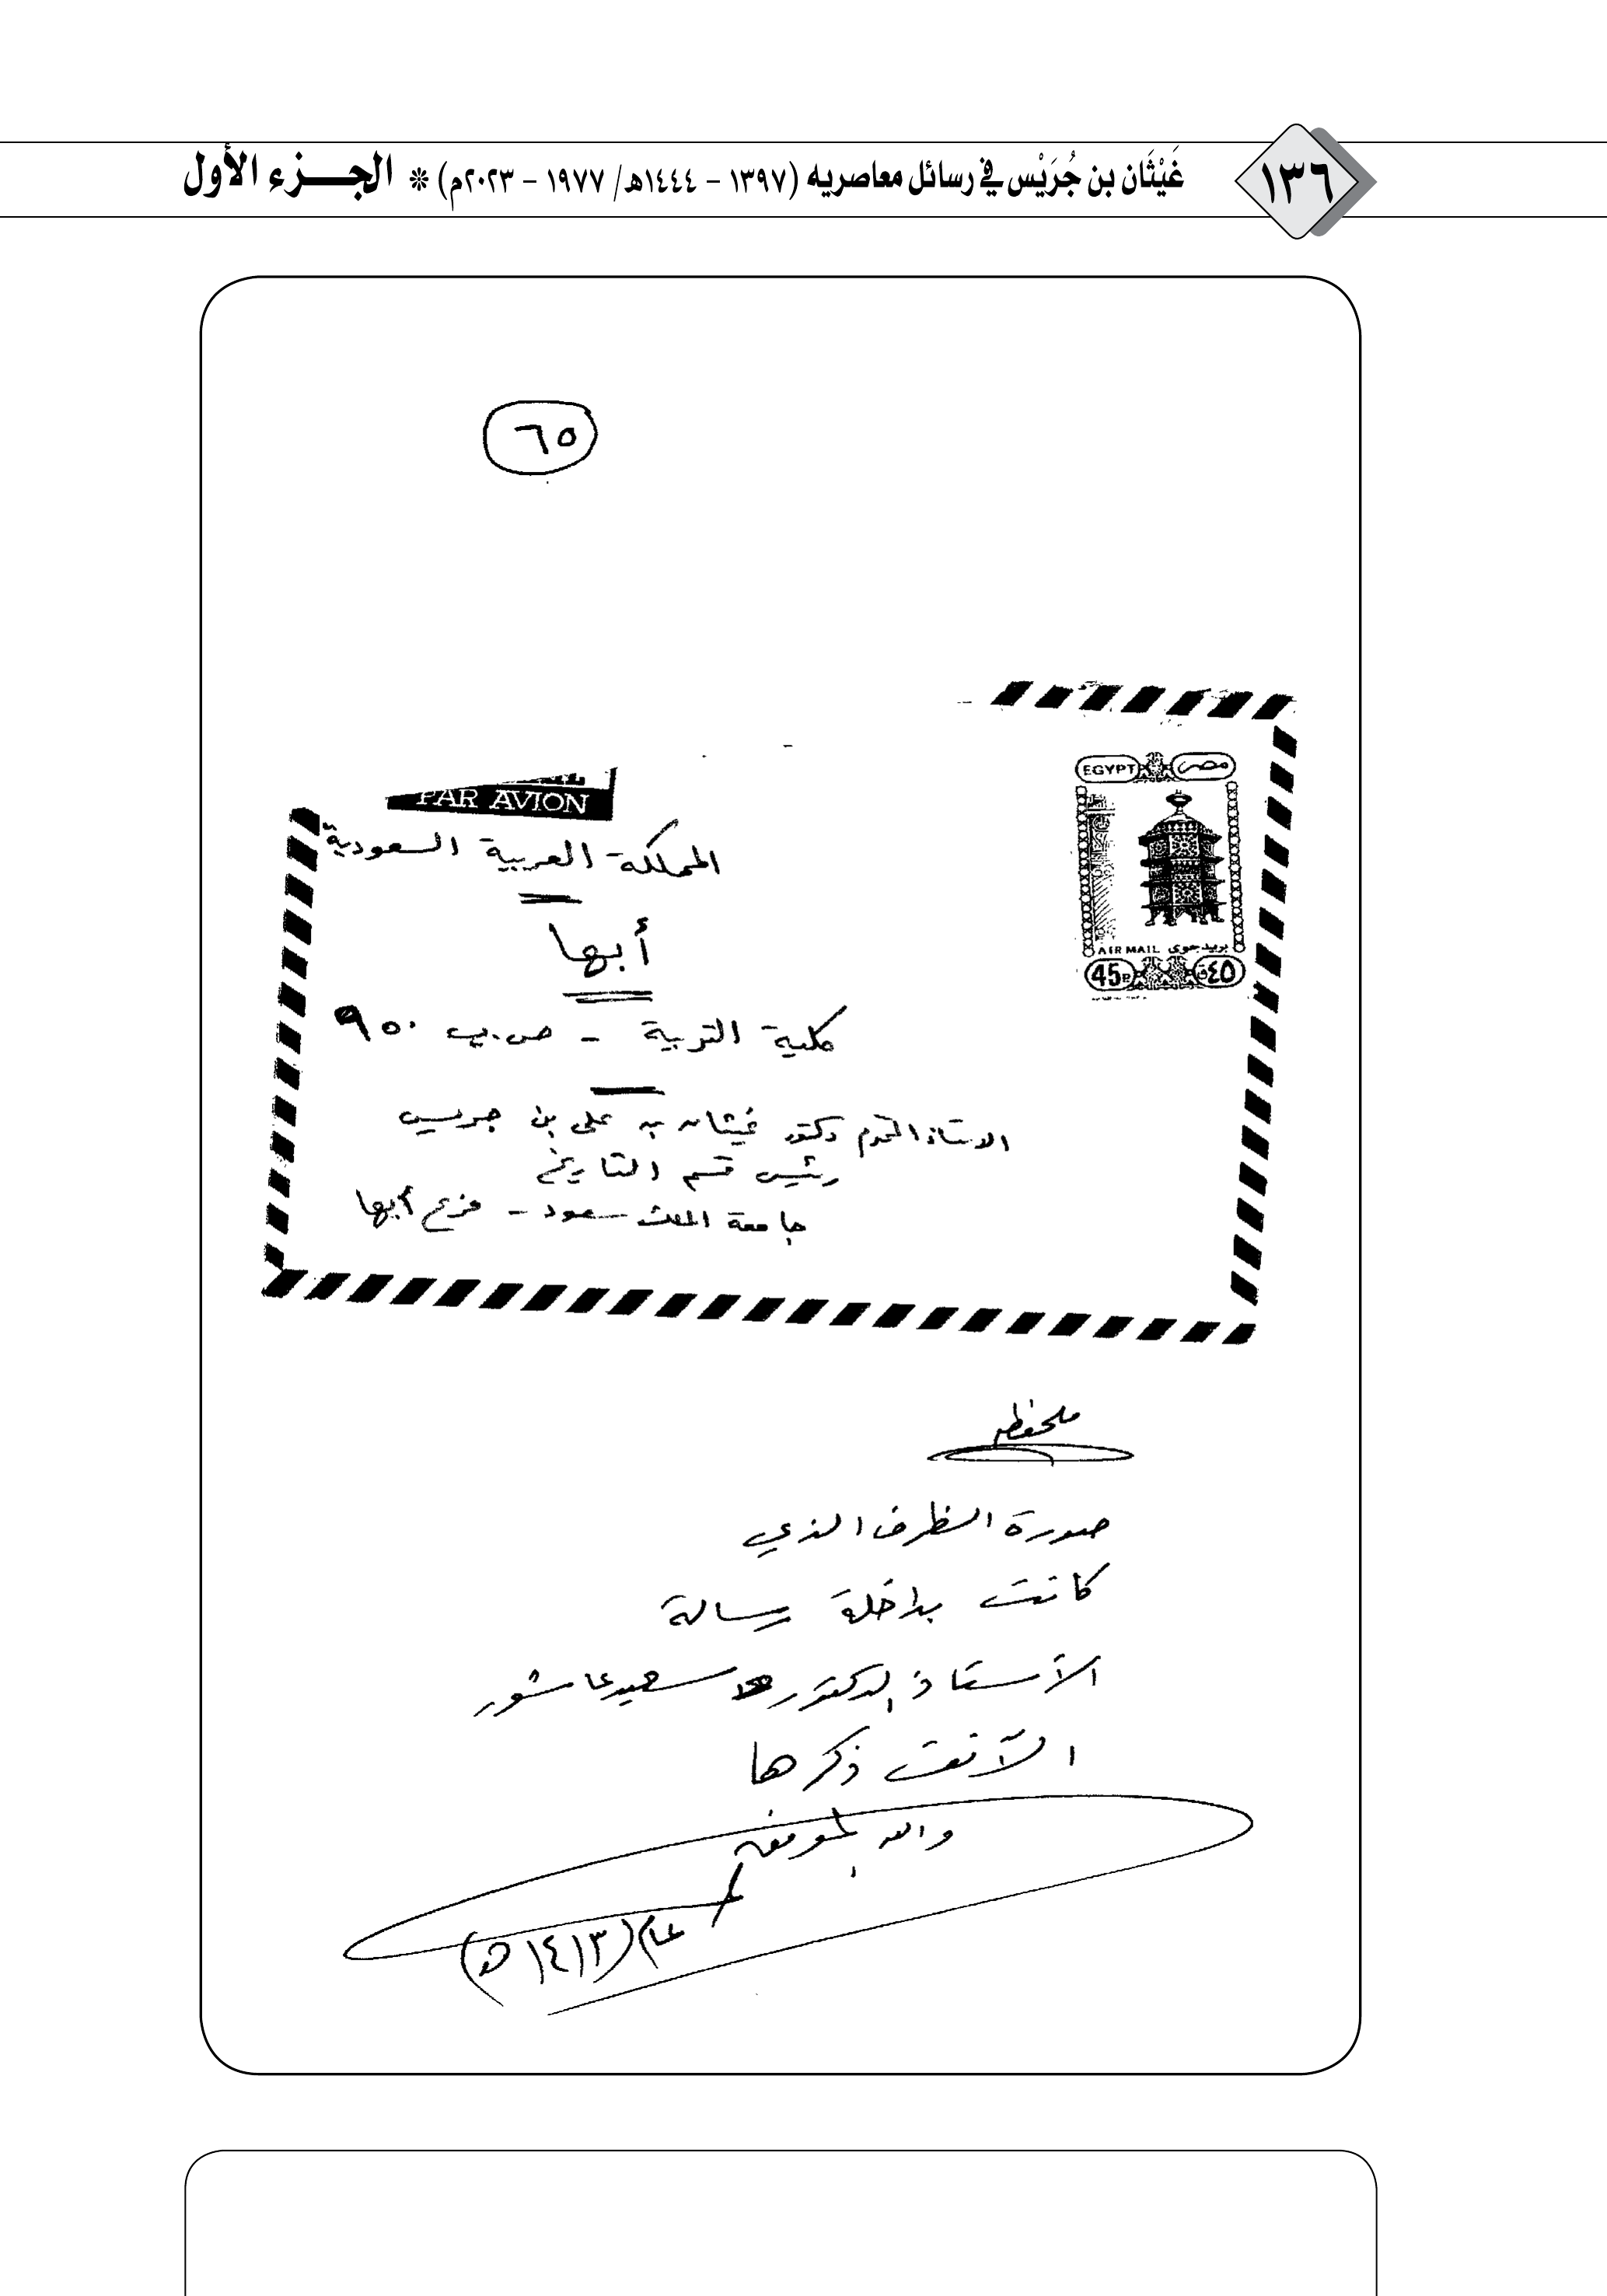 ١٣٦
غَيْثَان بن جُرَيْس في رسائل معاصريه (١٣٩٧ - ١٤٤٤هـ/ ١٩٧٧ - ٢٠٢٣م) * الجزء الأول
٦٥
PAR AVION
EGYPT مصر
AIR MAIL بريد جوى
45 P ٤٥ ق
المملكة العربية السعودية
أبها
كلية التربية - ص.ب ٩٥٠
الاستاذ المحترم دكتور غيثان بن على بن جريس
رئيس قسم التاريخ
جامعة الملك سعود - فرع أبها
ملحوظه
صورة الظرف الذي
كانت بداخلة رسالة
الأستاذ الدكتور سعيد عاشور
الآنفت ذكرها
والله الموفق
عام (١٤١٣هـ)